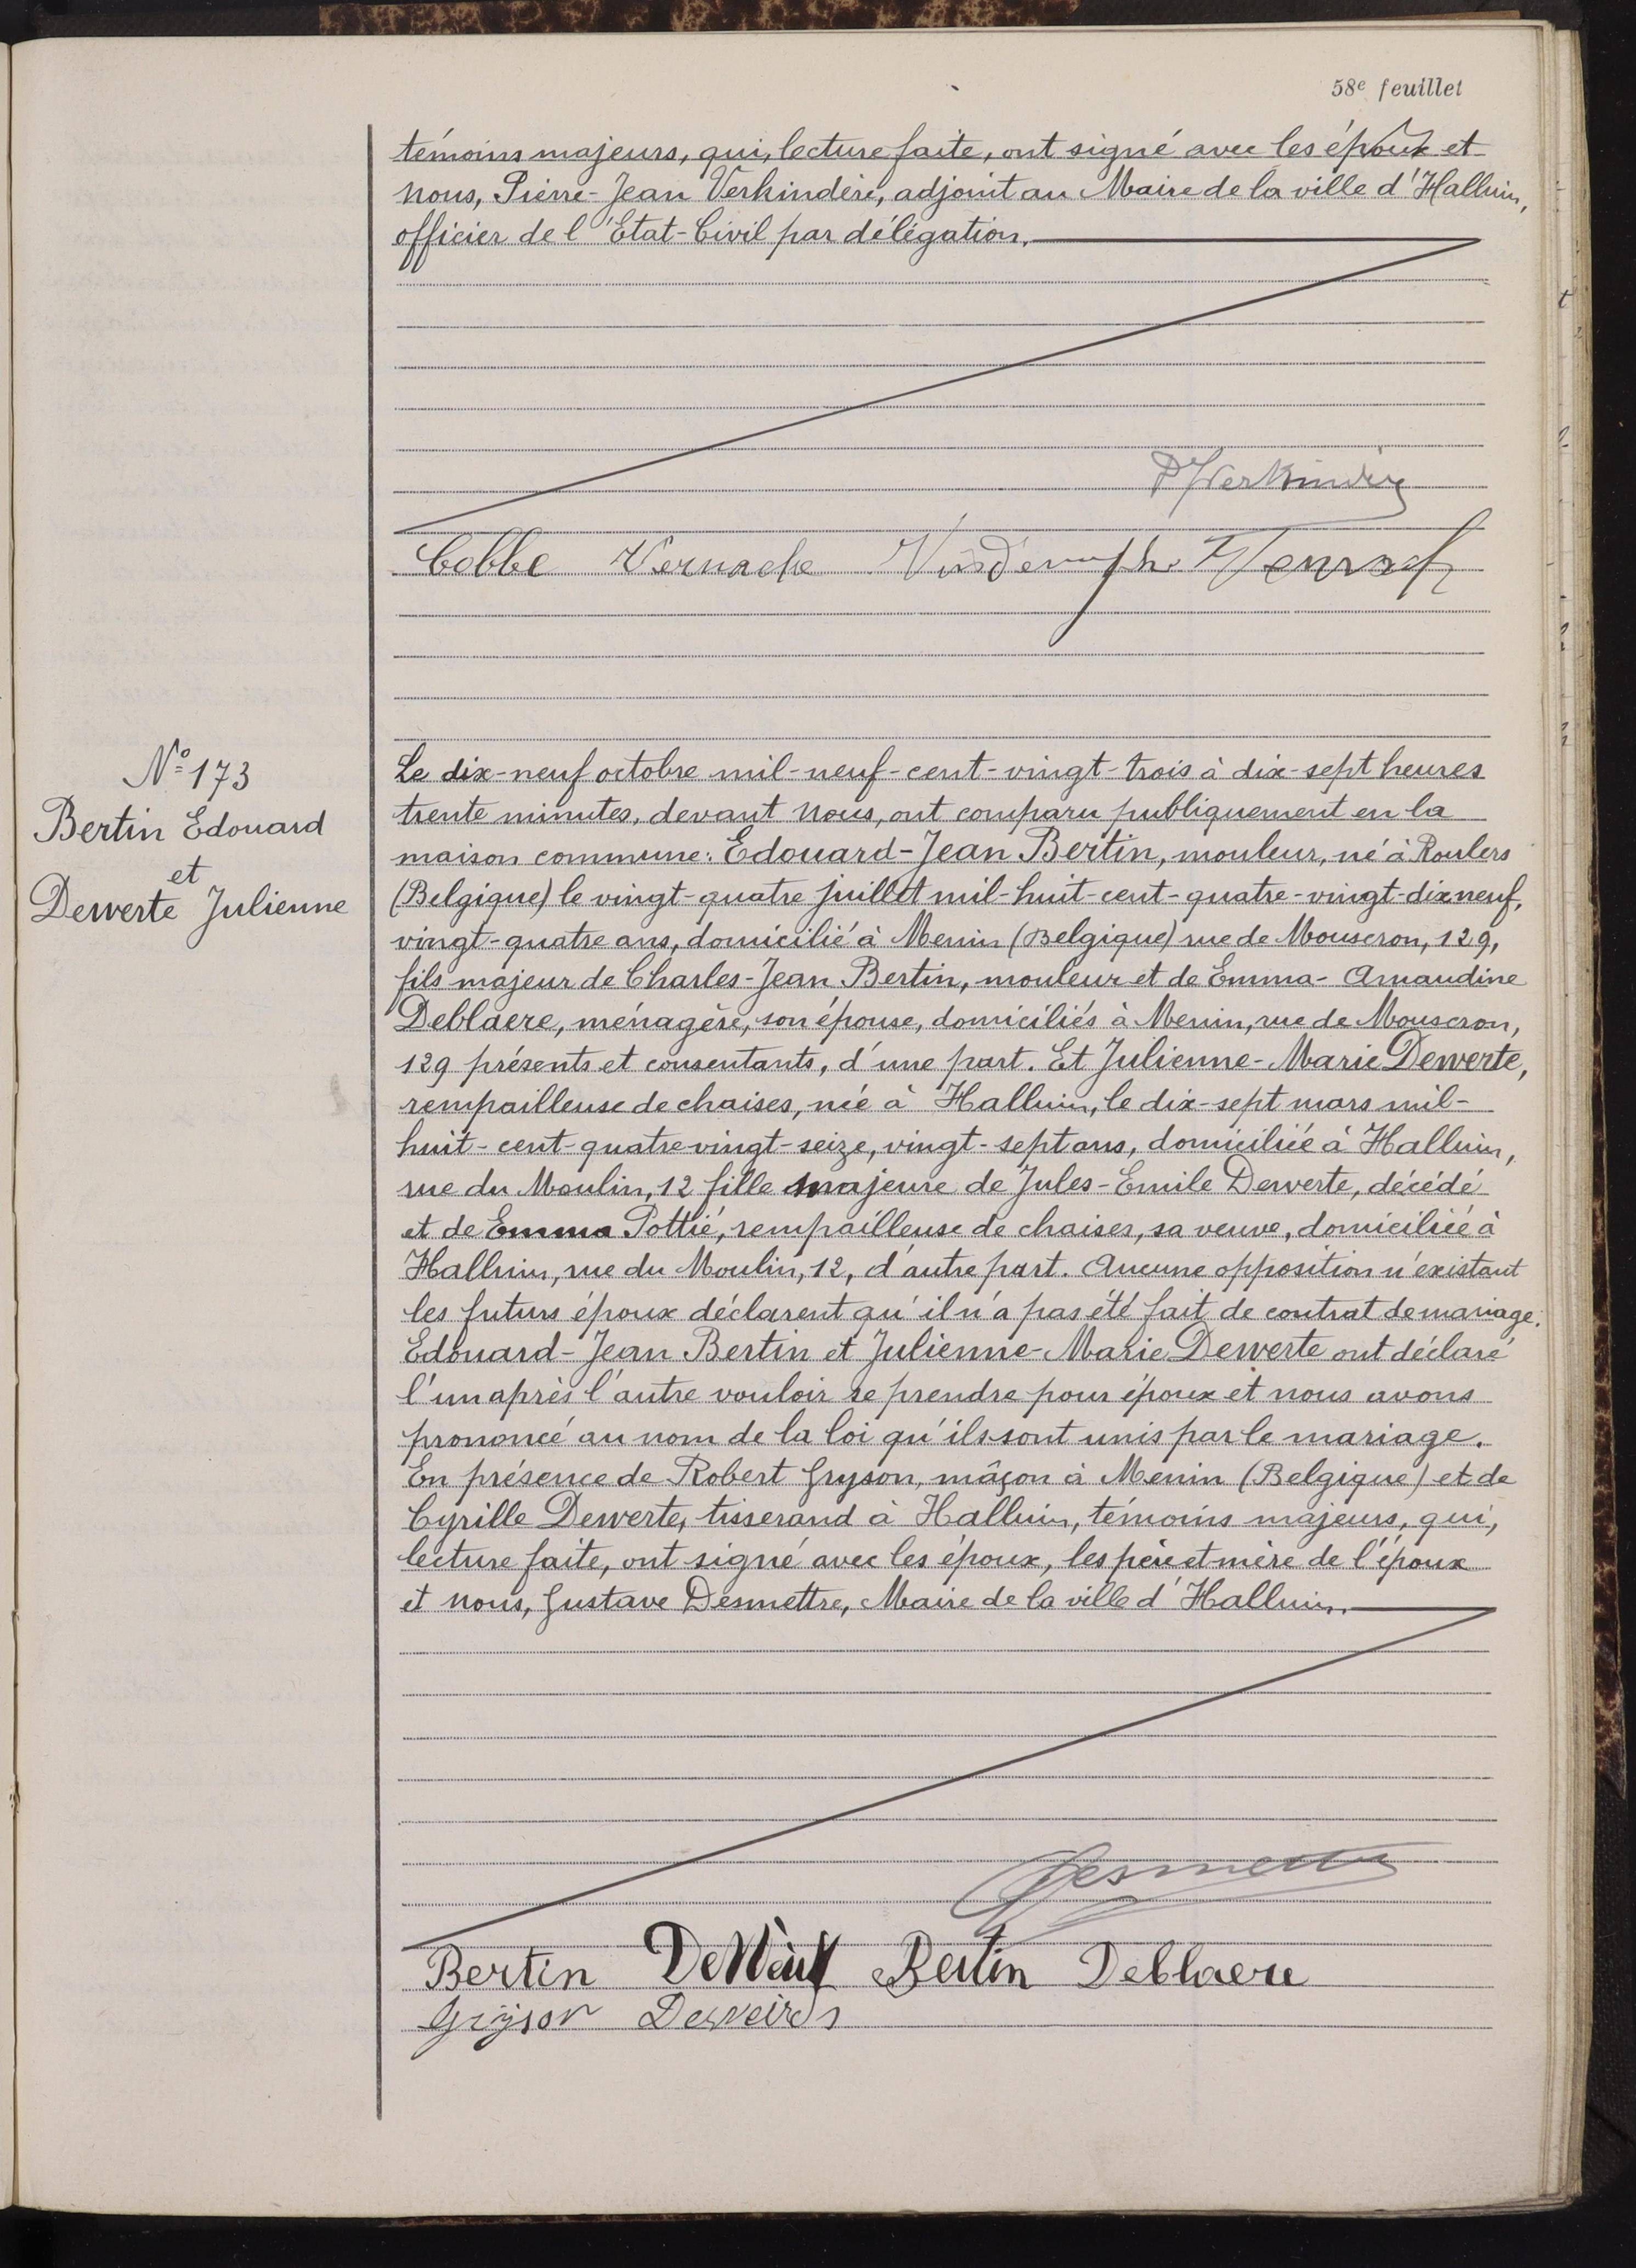 58e feuillet
témoins majeurs, qui, lecture faite, ont signé avec les époux et
nous, Pierre-Jean Verkindère, adjoint au Maire de la ville d'Halluin,
officier de l'Etat-Civil par délégation.
PVerkindère
Cobbe Vernache
N° 173
Bertin Edouard
et
Dewerte Julienne
Le dix-neuf octobre mil-neuf-cent-vingt-trois à dix-sept heures
trente minutes, devant nous, ont comparu publiquement en la
maison commune: Edouard-Jean Bertin, mouleur, né à Roulers
(Belgique) le vingt-quatre juillet mil-huit-cent-quatre-vingt-dix neuf,
vingt-quatre ans, domicilié à Menin (Belgique) rue de Mouscron, 129,
fils majeur de Charles-Jean Bertin, mouleur et de Emma-Amaudine
Deblaere, ménagère, son épouse, domiciliés à Menin, rue de Mouscron,
129 présents et consentants, d'une part. Et Julienne-Marie Dewerte,
rempailleuse de chaises, née à Halluin, le dix-sept mars mil-
huit-cent-quatre vingt-seize, vingt-sept ans, domiciliée à Halluin,
rue du Moulin, 12 fille majeure de Jules-Emile Dewerte, décédé
et de Emma Pottié, rempailleuse de chaises, sa veuve, domiciliée à
Halluin, rue du Moulin, 12, d'autre part. Aucune opposition n'existant
les futurs époux déclarent qu'il n'a pas été fait de contrat de mariage.
Edouard-Jean Bertin et Julienne-Marie Dewerte ont déclaré
l'un après l'autre vouloir se prendre pour époux et nous avons
prononcé au nom de la loi qu'ils sont unis par le mariage.
En présence de Robert Gryson, mâçon à Menin (Belgique) et de
Cyrille Dewerte, tisserand à Halluin, témoins majeurs, qui,
lecture faite, ont signé avec les époux, les père et mère de l'époux
et nous, Gustave Desmettre, Maire de la ville d'Halluin.
Desmettre
Bertin Bertin Deblaere
Gryson